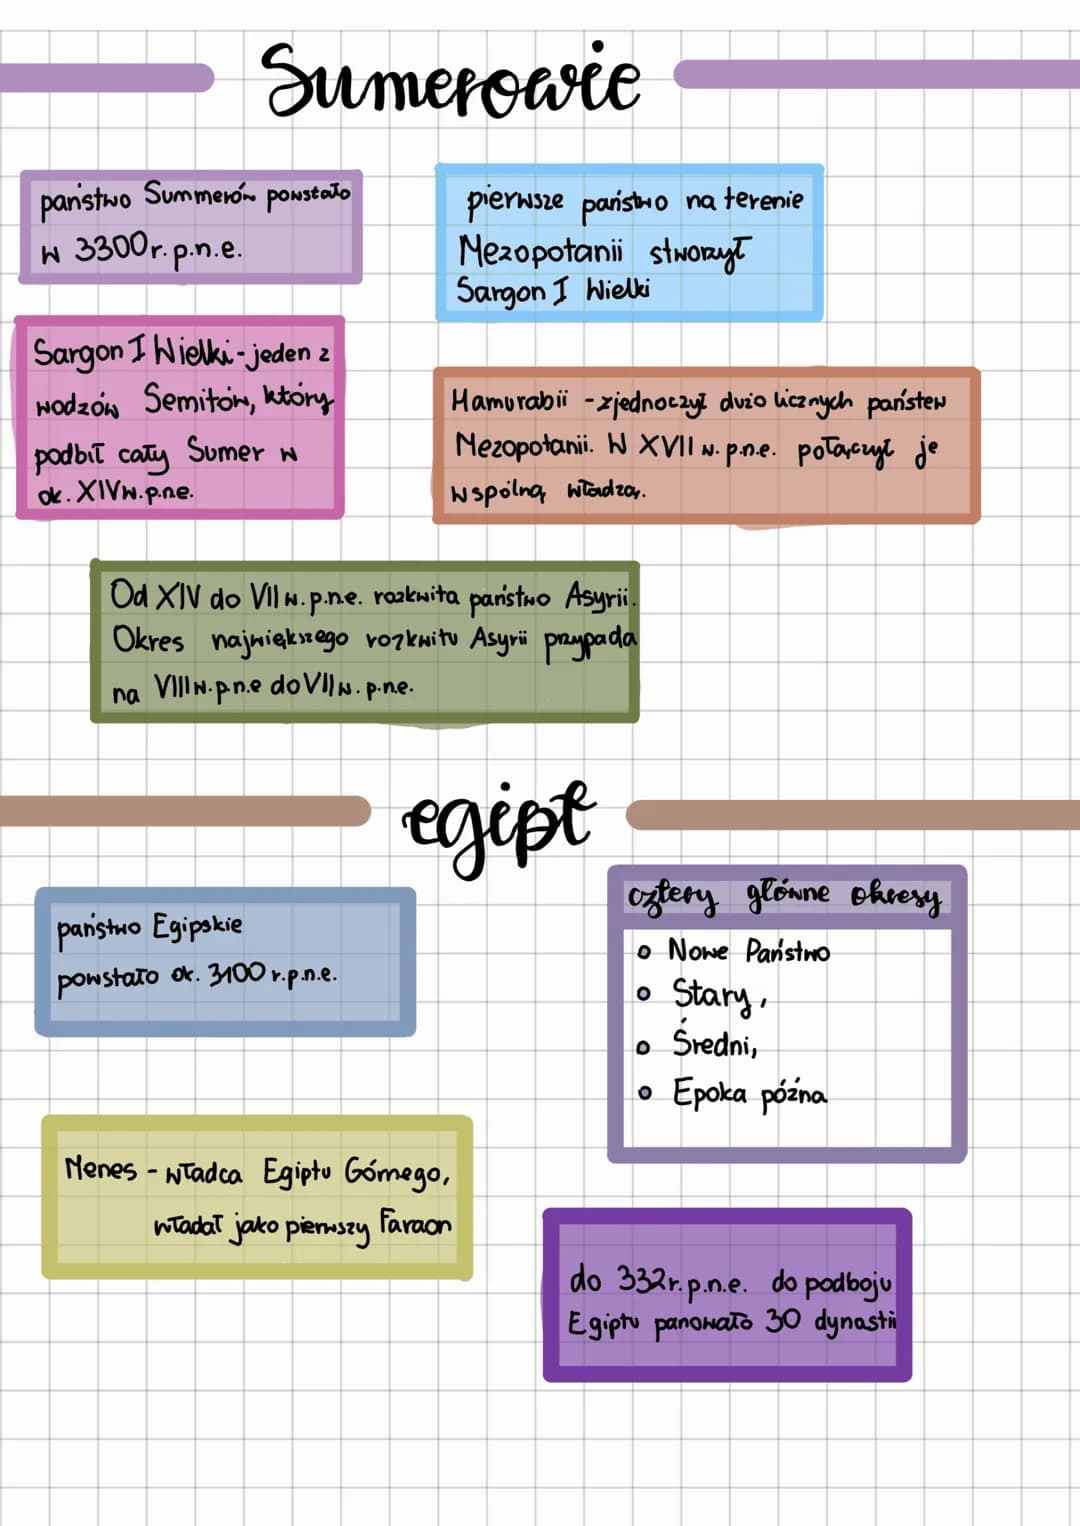 Sumerowie
państwo Summerów powstało
w 3300r.p.n.e.
pierwsze państwo na terenie
Mezopotanii stworzył
Sargon I Wielki
Sargon I Wielki - jeden z
wodzów Semitów, który
podbił cały Sumer w
ok. XIVw.p.ne.
Hamurabii - zjednoczył dużo licznych państew
Mezopotanii. W XVII w. p.n.e. połączył je
wspólną władzą.
Od XIV do VII w. p.n.e. rozkwita państwo Asyrii.
Okres największego rozkwitu Asyrii przypada
na VIII w. p.n.e do VII w. p.ne.
egipt
państwo Egipskie
powstało ok. 3100 r.p.n.e.
cztery główne okresy
Nowe Państwo
Stary,
Średni,
Epoka późna
Menes - władca Egiptu Górnego,
władał jako pierwszy Faraon
do 332r.p.n.e. do podboju
Egiptu panowało 30 dynastii